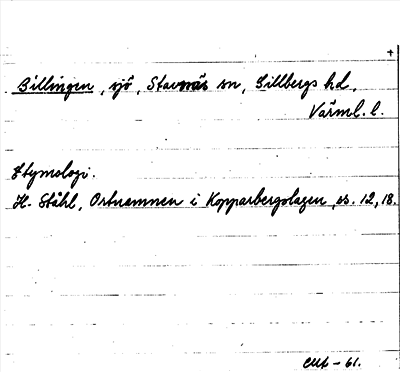 +
Billingen, sjö, Stavnäs sn, Gillbergs hd,
Värml. l.
Etymologi.
H. Ståhl, Ortnamnen i Kopparbergslagen, ss. 12, 18.
- 61.